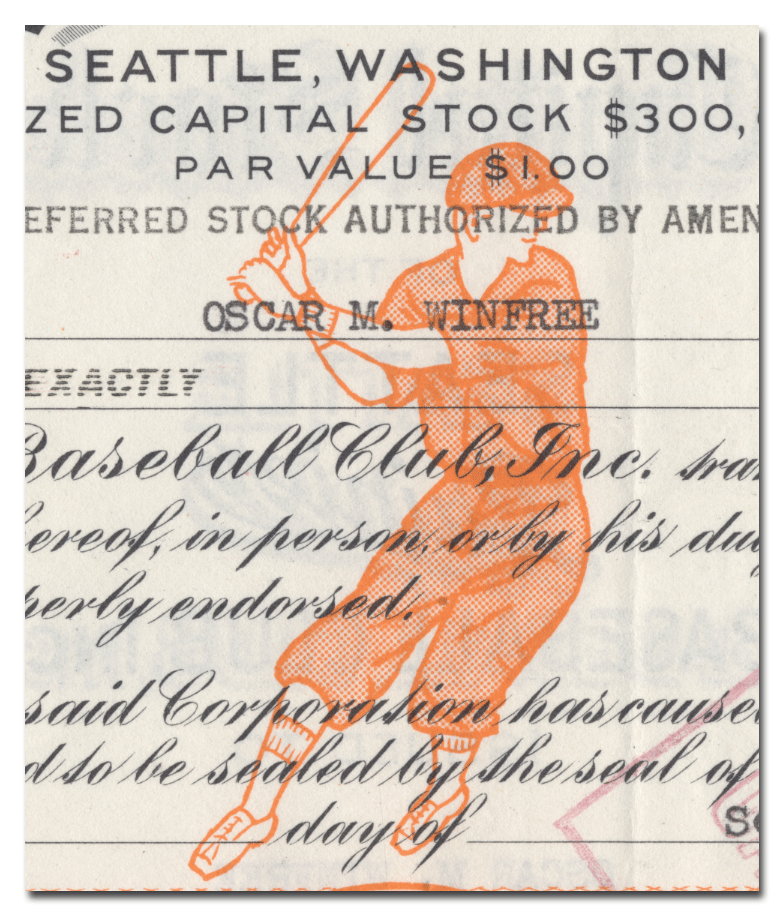 SEATTLE, WASHINGTON
ZED CAPITAL STOCK $300,
PAR VALUE $1.00
EFERRED STOCK AUTHORIZED BY AMEN
OSCAR M. WINFREE
EXACTLY
Baseball Club, Inc. tra
hereof, in person, or by his du
perly endorsed.
said Corporation has cause
d to be sealed by the seal of
day of
S